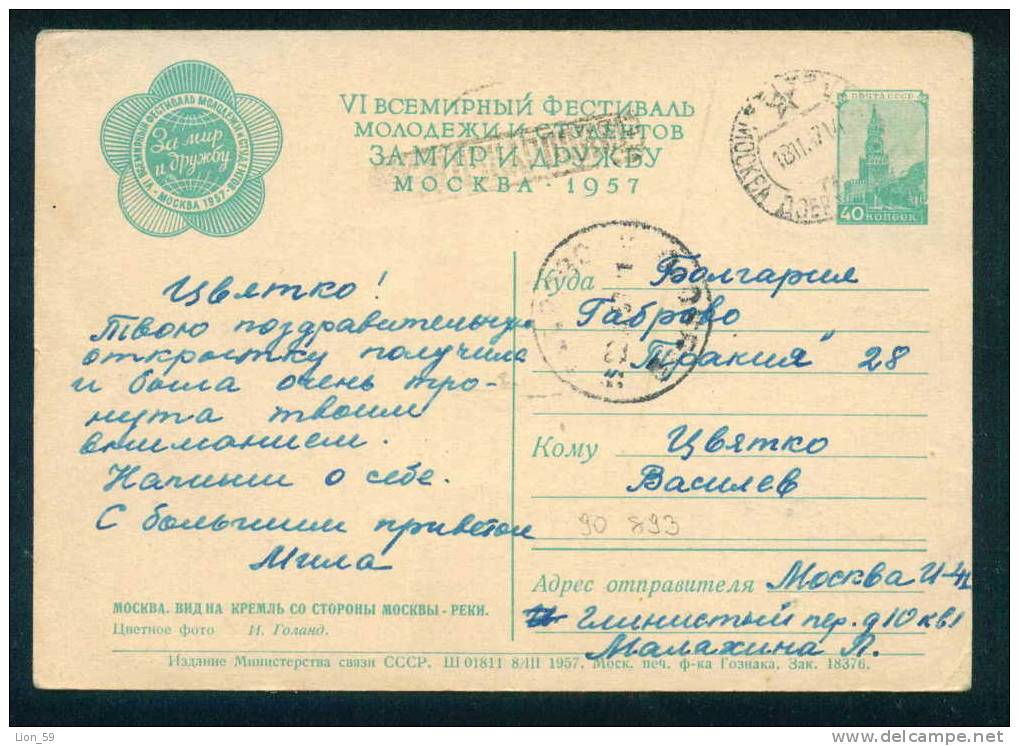 VI ВСЕМИРНЫЙ ФЕСТИВАЛЬ МОЛОДЕЖИ И СТУДЕНТОВ
За мир
и дружбу
МОСКВА 1957
VI ВСЕМИРНЫЙ ФЕСТИВАЛЬ
МОЛОДЕЖИ И СТУДЕНТОВ
ЗА МИР И ДРУЖБУ
МОСКВА · 1957
МОСКВА
ПОЧТА СССР
40 КОПЕЕК
Цвятко!
Твою поздравительную
открыстку получила
и была очень тро-
нута твоим
вниманием.
Напиши о себе.
С большим приветом
Мила
Куда Болгария
Габрово
"Тракия" 28
Кому Цвятко
Василев
90 893
Адрес отправителя Москва И-4
Глинистый пер. д 10 кв 1
Малахина Л.
МОСКВА. ВИД НА КРЕМЛЬ СО СТОРОНЫ МОСКВЫ-РЕКИ.
Цветное фото И. Голанд.
Издание Министерства связи СССР. Ш 01811 8/III 1957. Моск. печ. ф-ка Гознака. Зак. 18376.
Lion_59
www.delcampe.net